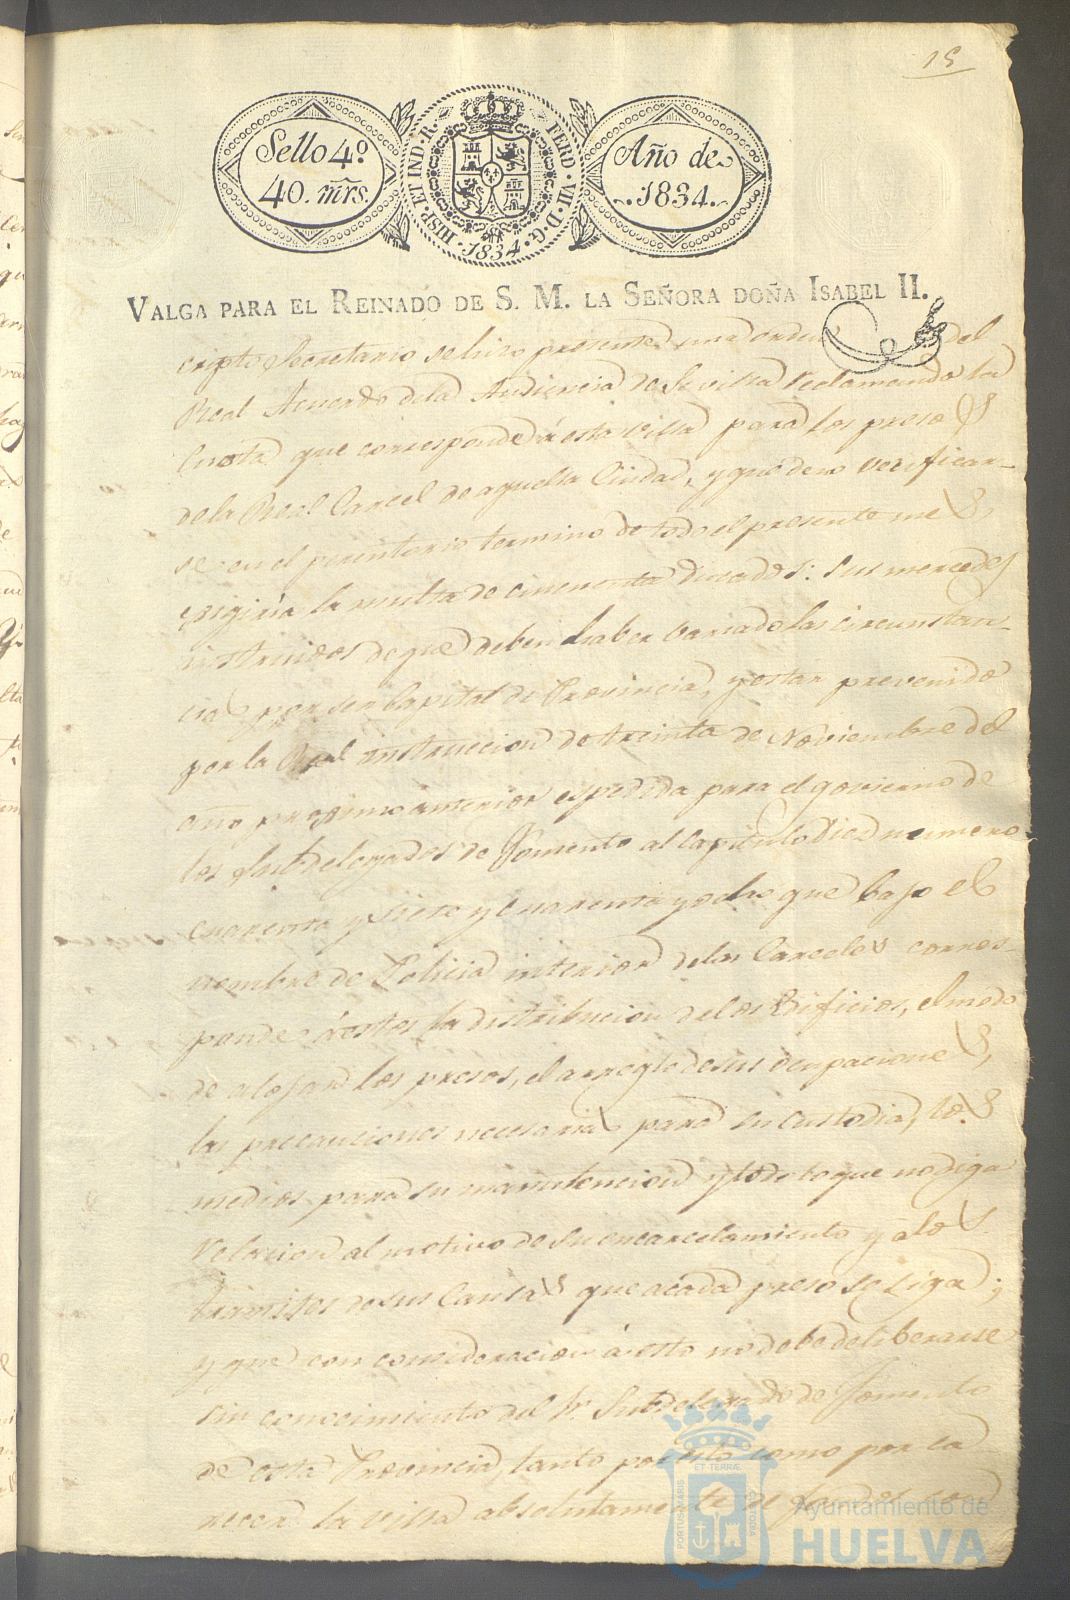 15
Sello 4º
40. mrs.
HISP. ET IND. R.
FERD. VII. D. G.
1834
Año de
1834.
VALGA PARA EL REINADO DE S. M. LA SEÑORA DOÑA ISABEL II.
cripto Secretario se hizo presente una orden del
Real Acuerdo dela Audiencia de Sevilla reclamando la
Cuota que corresponde á esta villa para los presos
dela Real Carcel de aquella Ciudad, y que deno verificar-
se en el perentorio termino de todo el presente mes
exigiria la multa de cincuenta ducados: sus mercedes
instruidos deque deben haber variado las circunstan-
cias por ser Capital de Provincia, y estar prevenido
por la Real instruccion de treinta de Noviembre del
año proximo anterior espedida para el govierno de
los Subdelegados de Fomento al Capitulo diez numero
cuarenta y siete y cuarenta y ocho que bajo el
nombre de Policia interior delas Carceles corres-
ponde á estos la distribucion delos Edificios, el modo
de alojar los presos, el arreglo desus ocupaciones,
las precauciones necesarias para su custodia, los
medios para su manutencion y todo loque no diga
relacion al motivo de su encarcelamiento y alos
tramites desus Causas que acada preso se siga;
y que con consideracion á esto no debe deliberarse
sin conocimiento del Sr. Subdelegado de Fomento
de esta Provincia, tanto por esto como por ca
recer la villa absolutamente de fondos con
PORTUS MARIS ET TERRÆ CUSTODIA
Ayuntamiento de
HUELVA